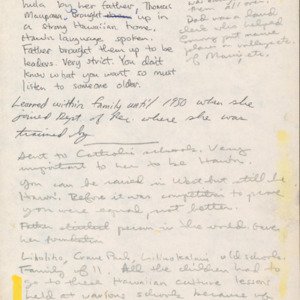 hula by her father, Thomas
brought up in
a strong Hawaiian home.
Hawn language spoken.
Father brought them up to be
leaders. Very strict. You don't
know what you want so must
listen to someone older.
them. All over.
Dad was a land
clerk who helped
put native
plants in
of
Learned within family until 1950 when she
joined Dept. of Rec. where she was
trained by
Went to Catholic schools. Very
important to her to be Hawn.
You can be raised in West but still be
Hawn. Before it was competition to prove
you were equal, not better.
Father person in the world. Gave
her foundation
Liholiho, Liliuokalani old schools.
Family of 11. All the children had to
go to these Hawaiian culture lessons
held at various schools because of